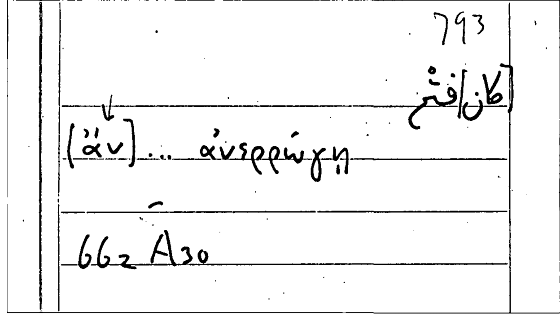 793
[كان] فتح
[ἂν] ... ἀνερρώγῃ
662 A30